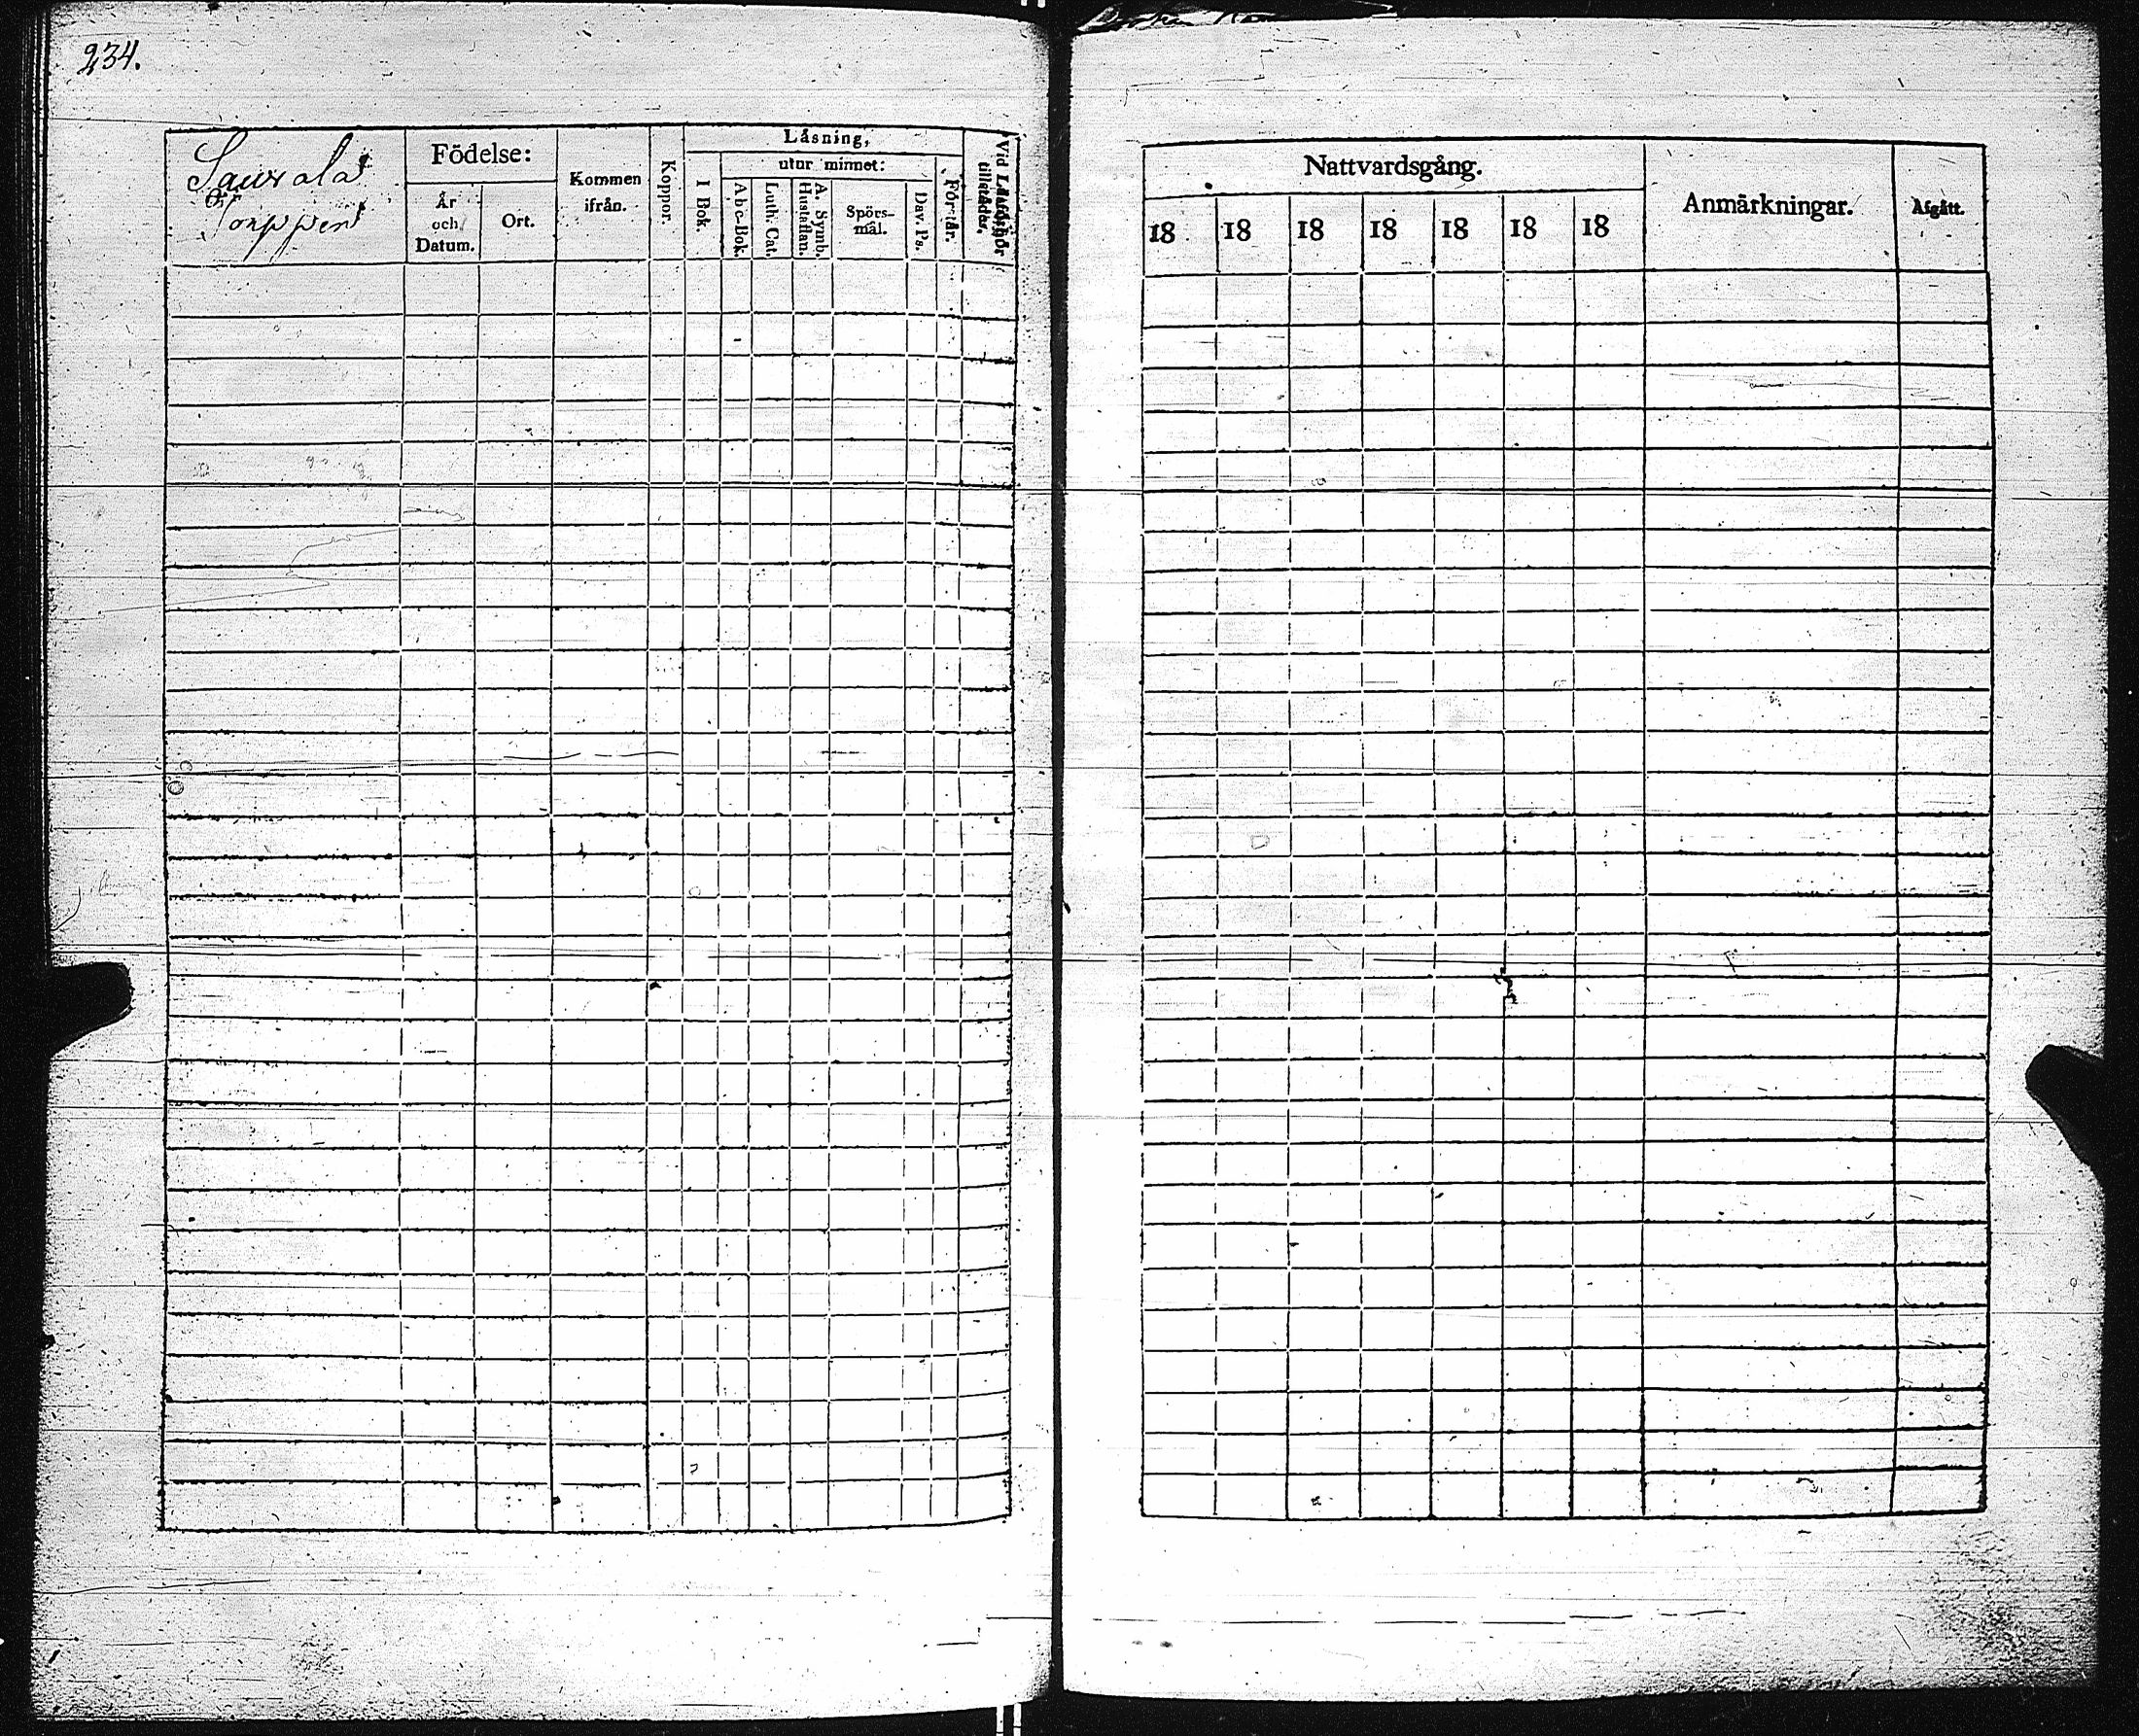 234.
Saurala
Torpper
Födelse:
År
och
Datum.
Ort.
Kommen
ifrån.
Koppor.
Läsning,
I Bok.
utur minnet:
A b c-Bok.
Luth. Cat.
A. Symb.
Hustaflan.
Spörs-
mål.
Dav. Ps.
Förstår.
Vid Läsförhör
tillstädes.
Nattvardsgång.
18 18 18 18 18 18 18
Anmärkningar.
Afgått.